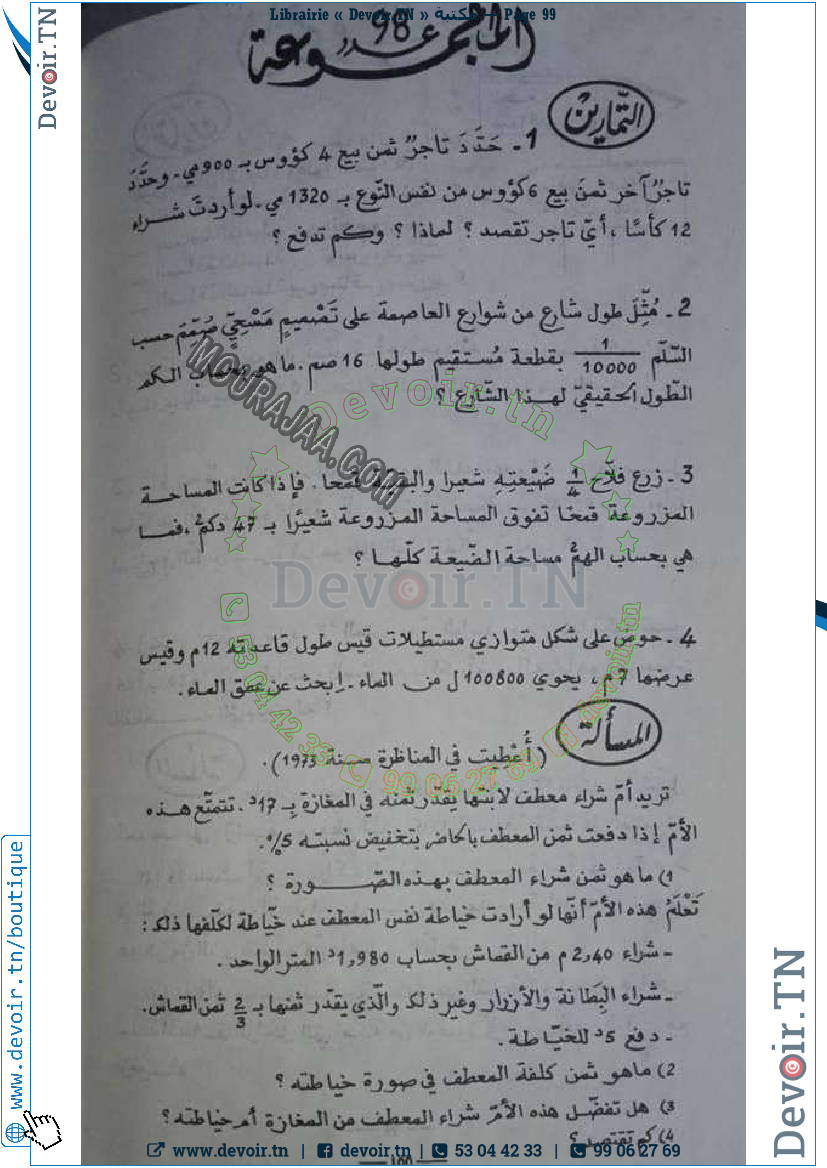 Librairie « Devoir.TN » مكتبة - Page 99
Devoir.TN
المجموعة عدد 98
التمارين
1 - حَدَّدَ تاجرٌ ثمن بيع 4 كؤوس بـ 900 مي. وحدَّدَ
تاجرٌ آخر ثمنَ بيع 6 كؤوس من نفس النّوع بـ 1320 مي. لو أردتَ شراء
12 كأسًا، أيّ تاجر تقصد؟ لماذا؟ وكم تدفع؟
2 - مُثِّلَ طول شارع من شوارع العاصمة على تَصْميمٍ مَسْحِيٍّ صُمِّمَ حسب
السّلّم 1/10000 بقطعة مُستقيم طولها 16 صم. ما هو بحساب الكم
الطّول الحقيقيّ لهذا الشّارع؟
3 - زرع فلاّح 1/4 ضَيْعتِهِ شعيرا والبقية قمحا. فإذا كانت المساحة
المزروعة قمحًا تفوق المساحة المزروعة شعيرًا بـ 47 دكم²، فما
هي بحساب الهم² مساحة الضّيعة كلّها؟
4 - حوض على شكل متوازي مستطيلات قيس طول قاعدته 12م وقيس
عرضها 7م، يحوي 100800 ل من الماء. إبحث عن عمق الماء.
المسألة
(أُعْطِيت في المناظرة سنة 1973).
تريد أمّ شراء معطف لابنتها يقدّر ثمنه في المغازة بـ 17د. تتمتّع هذه
الأمّ إذا دفعت ثمن المعطف بالحاضر بتخفيض نسبته 5%.
1) ما هو ثمن شراء المعطف بهذه الصّورة؟
تَعْلَمُ هذه الأمّ أنّها لو أرادت خياطة نفس المعطف عند خيّاطة لكلّفها ذلك:
- شراء 2,40 م من القماش بحساب 1,980د المتر الواحد.
- شراء البَطانة والأزرار وغير ذلك والّذي يقدّر ثمنها بـ 2/3 ثمن القماش.
- دفع 5د للخيّاطة.
2) ما هو ثمن كلفة المعطف في صورة خياطته؟
3) هل تفضّل هذه الأمّ شراء المعطف من المغازة أم خياطته؟
4) كم تقتصد؟
100
MOURAJAA.COM
Devoir.tn
Devoir.TN
53 04 42 33
99 06 27 69
devoir.tn
www.devoir.tn/boutique
Devoir.TN
www.devoir.tn | devoir.tn | 53 04 42 33 | 99 06 27 69